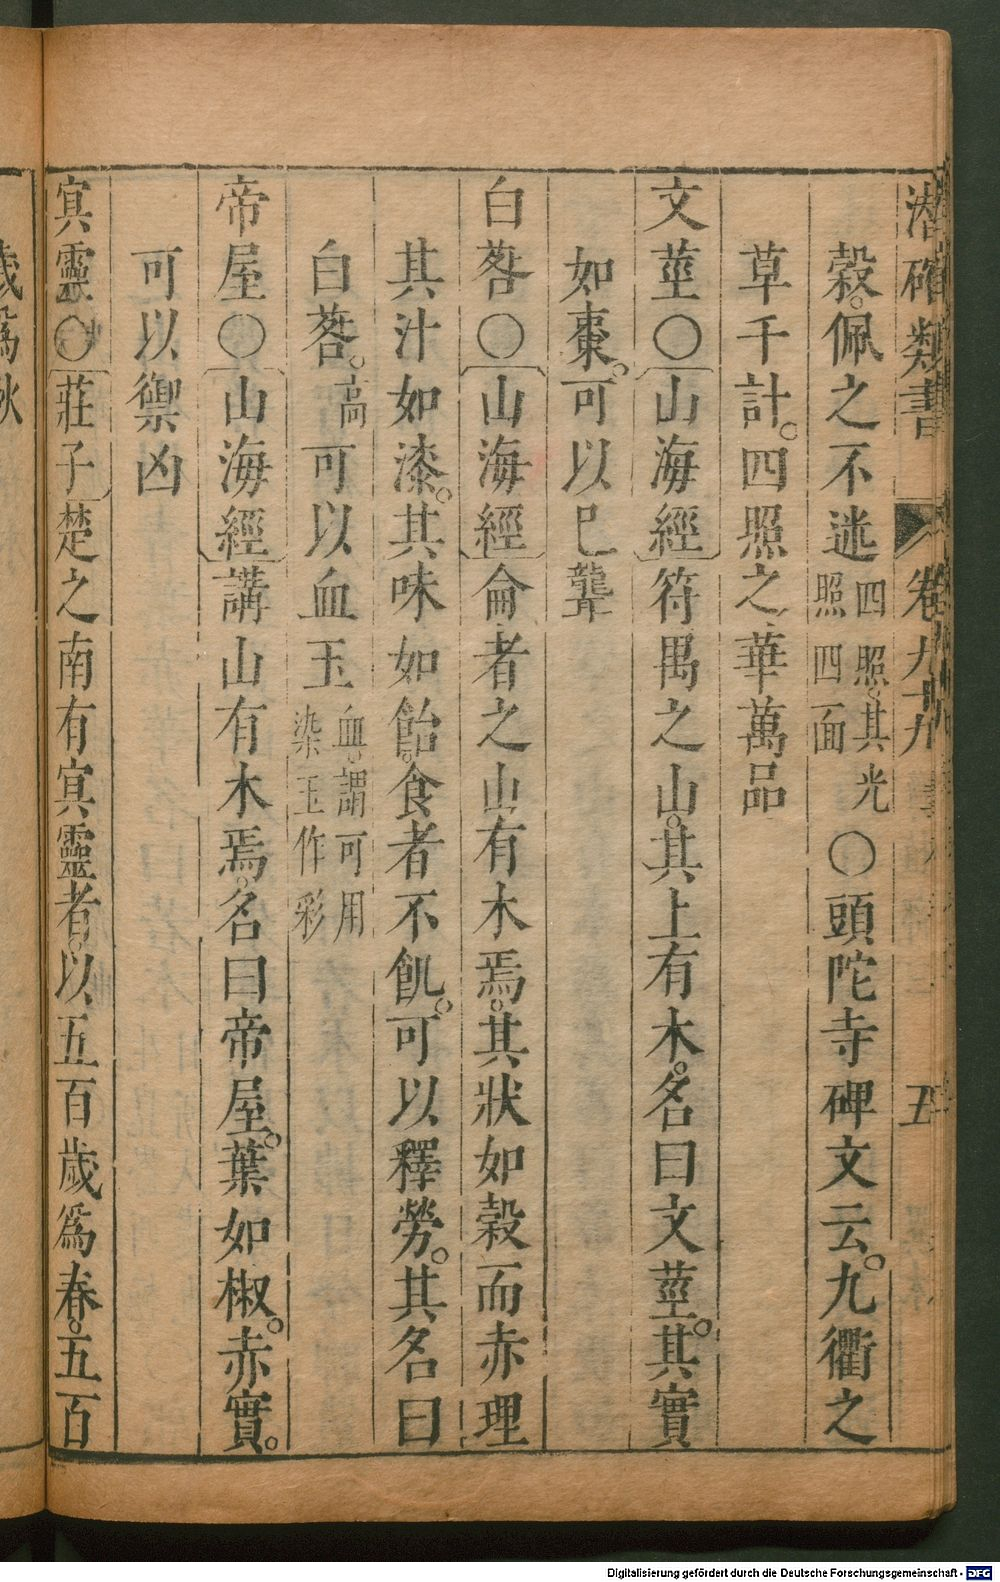 潛確類書 卷九十九 五
穀。佩之不迷四照。其光照四面○頭陀寺碑文云。九衢之
草千計。四照之華萬品
文莖○〔山海經〕符禺之山。其上有木。名曰文莖。其實
如棗。可以已聾
白䓘○〔山海經〕侖者之山有木焉。其狀如穀而赤理
其汁如漆。其味如飴。食者不飢。可以釋勞。其名曰
白䓘。高可以血玉血。謂可用染玉作彩
帝屋○〔山海經〕講山有木焉。名曰帝屋。葉如椒。赤實。
可以禦凶
㝠靈○〔莊子〕楚之南有㝠靈者。以五百歲爲春。五百
歲爲秋
Digitalisierung gefördert durch die Deutsche Forschungsgemeinschaft - DFG